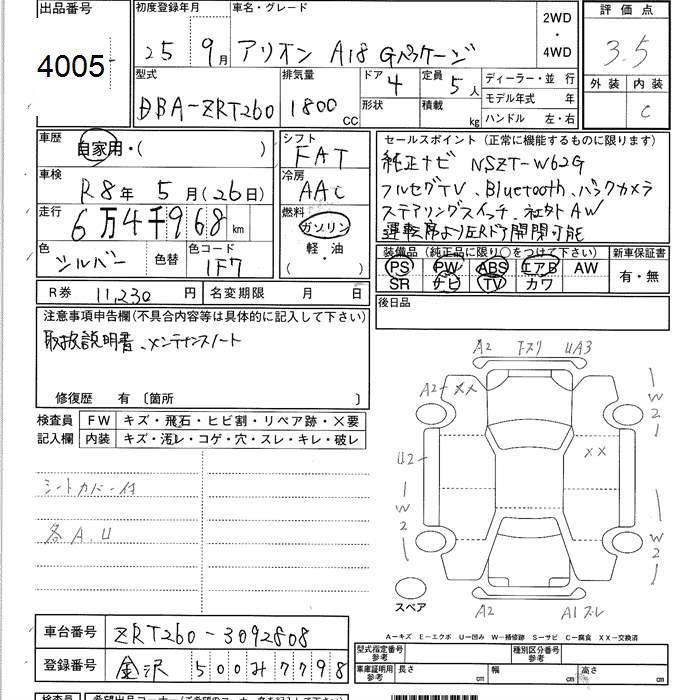 出品番号 初度登録年月 車名・グレード 2WD・4WD 評価点
4005 25 9月 アリオン A18 Gパッケージ 3.5
型式 排気量 ドア 4 定員 5人 ディーラー・並行 外装 内装
DBA-ZRT260 1800cc 形状 積載 kg モデル年式 年 C
ハンドル 左・右
車歴 自家用・( ) シフト FAT セールスポイント (正常に機能するものに限ります)
車検 R8年 5月(26日) 冷房 AAC 純正ナビ NSZT-W62G
フルセグTV、Bluetooth、バックカメラ
走行 6万4千968km 燃料 ガソリン 軽・油 ( ) ステアリングスイッチ、社外AW
運転席より左Rドア開閉可能
色 シルバー 色替 色コード 1F7 装備品(純正品に限り○をつけて下さい) 新車保証書
PS PW ABS エアB AW 有・無
SR ナビ TV カワ
R券 11,230円 名変期限 月 日 後日品
注意事項申告欄(不具合内容等は具体的に記入して下さい)
取扱説明書、メンテナンスノート
修復歴 有 〔箇所 〕
検査員記入欄 FW キズ・飛石・ヒビ割・リペア跡・×要
内装 キズ・汚レ・コゲ・穴・スレ・キレ・破レ
シートカバー付
各A.U
A2 UA3
A2 XX
W2
U2
XX
W2
W2
スペア
A2 A1
A-キズ E-エクボ U-凹み W-補修跡 S-サビ C-腐食 XX-交換済
車台番号 ZRT260-3092808
登録番号 金沢 500 み 7798
型式指定番号 参考 種別区分番号 参考
車庫証明用 参考 長さ cm 幅 cm 高さ cm